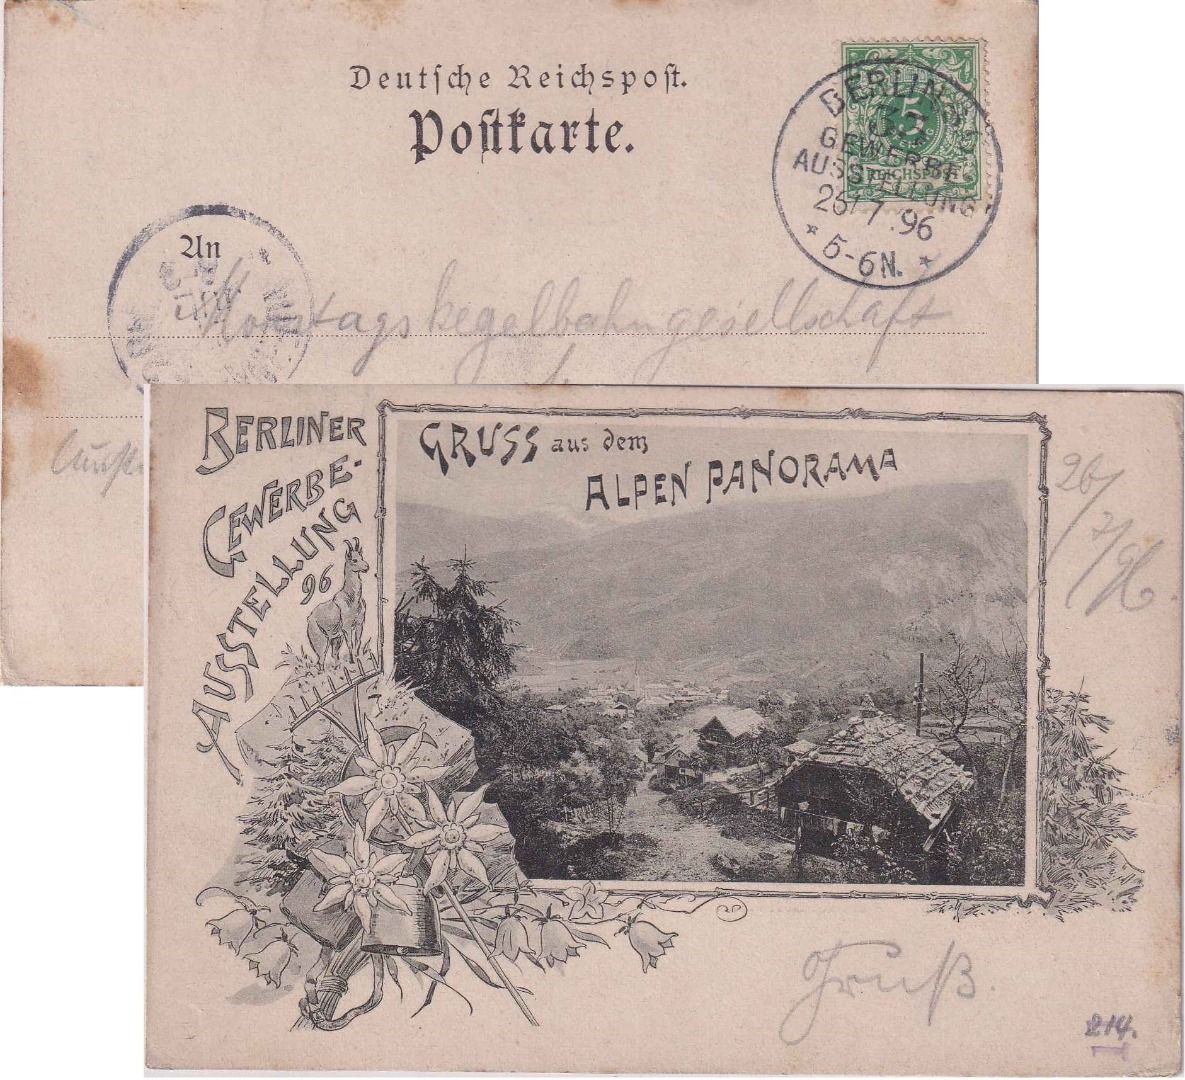 Deutsche Reichspost.
Postkarte.
5
REICHSPOST
BERLIN
GEWERBE
AUSSTELLUNG
26/7.96
* 5-6N. *
An
Montagskegelbahngesellschaft
BERLINER
GEWERBE-
AUSSTELLUNG
96
GRUSS aus dem
ALPEN PANORAMA
26/7/96.
Gruß.
214.